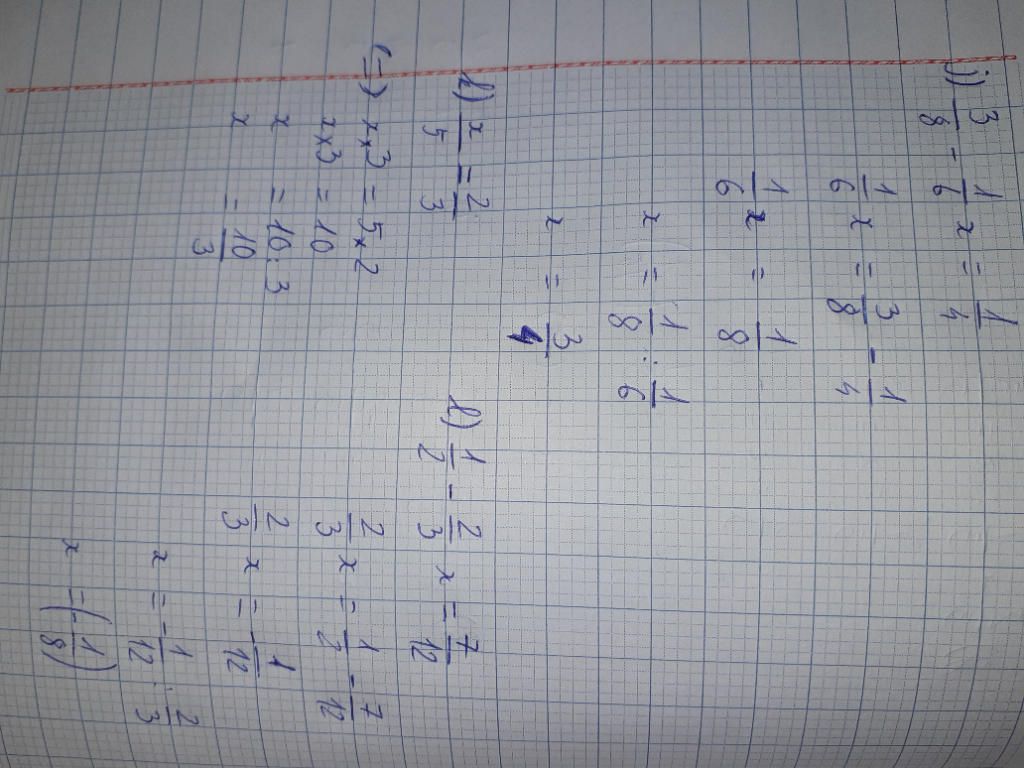 j) 3/8 - 1/6 x = 1/4
1/6 x = 3/8 - 1/4
1/6 x = 1/8
x = 1/8 : 1/6
x = 3/4
l) x/5 = 2/3
(=) x×3 = 5×2
x×3 = 10
x = 10:3
x = 10/3
l) 1/2 - 2/3 x = 7/12
2/3 x = 1/2 - 7/12
2/3 x = -1/12
x = -1/12 : 2/3
x = (-1/8)